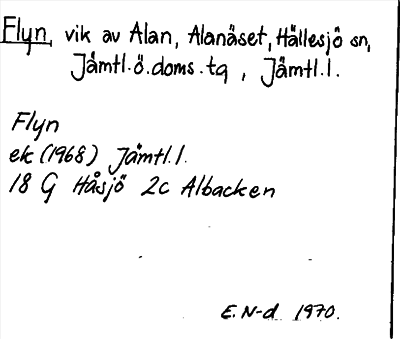 Flyn, vik av Alan, Alanäset, Hällesjö sn,
Jämtl.ö.doms.tg, Jämtl.l.
Flyn
ek (1968) Jämtl.l.
18 G Håsjö 2c Albacken
E. N-d 1970.